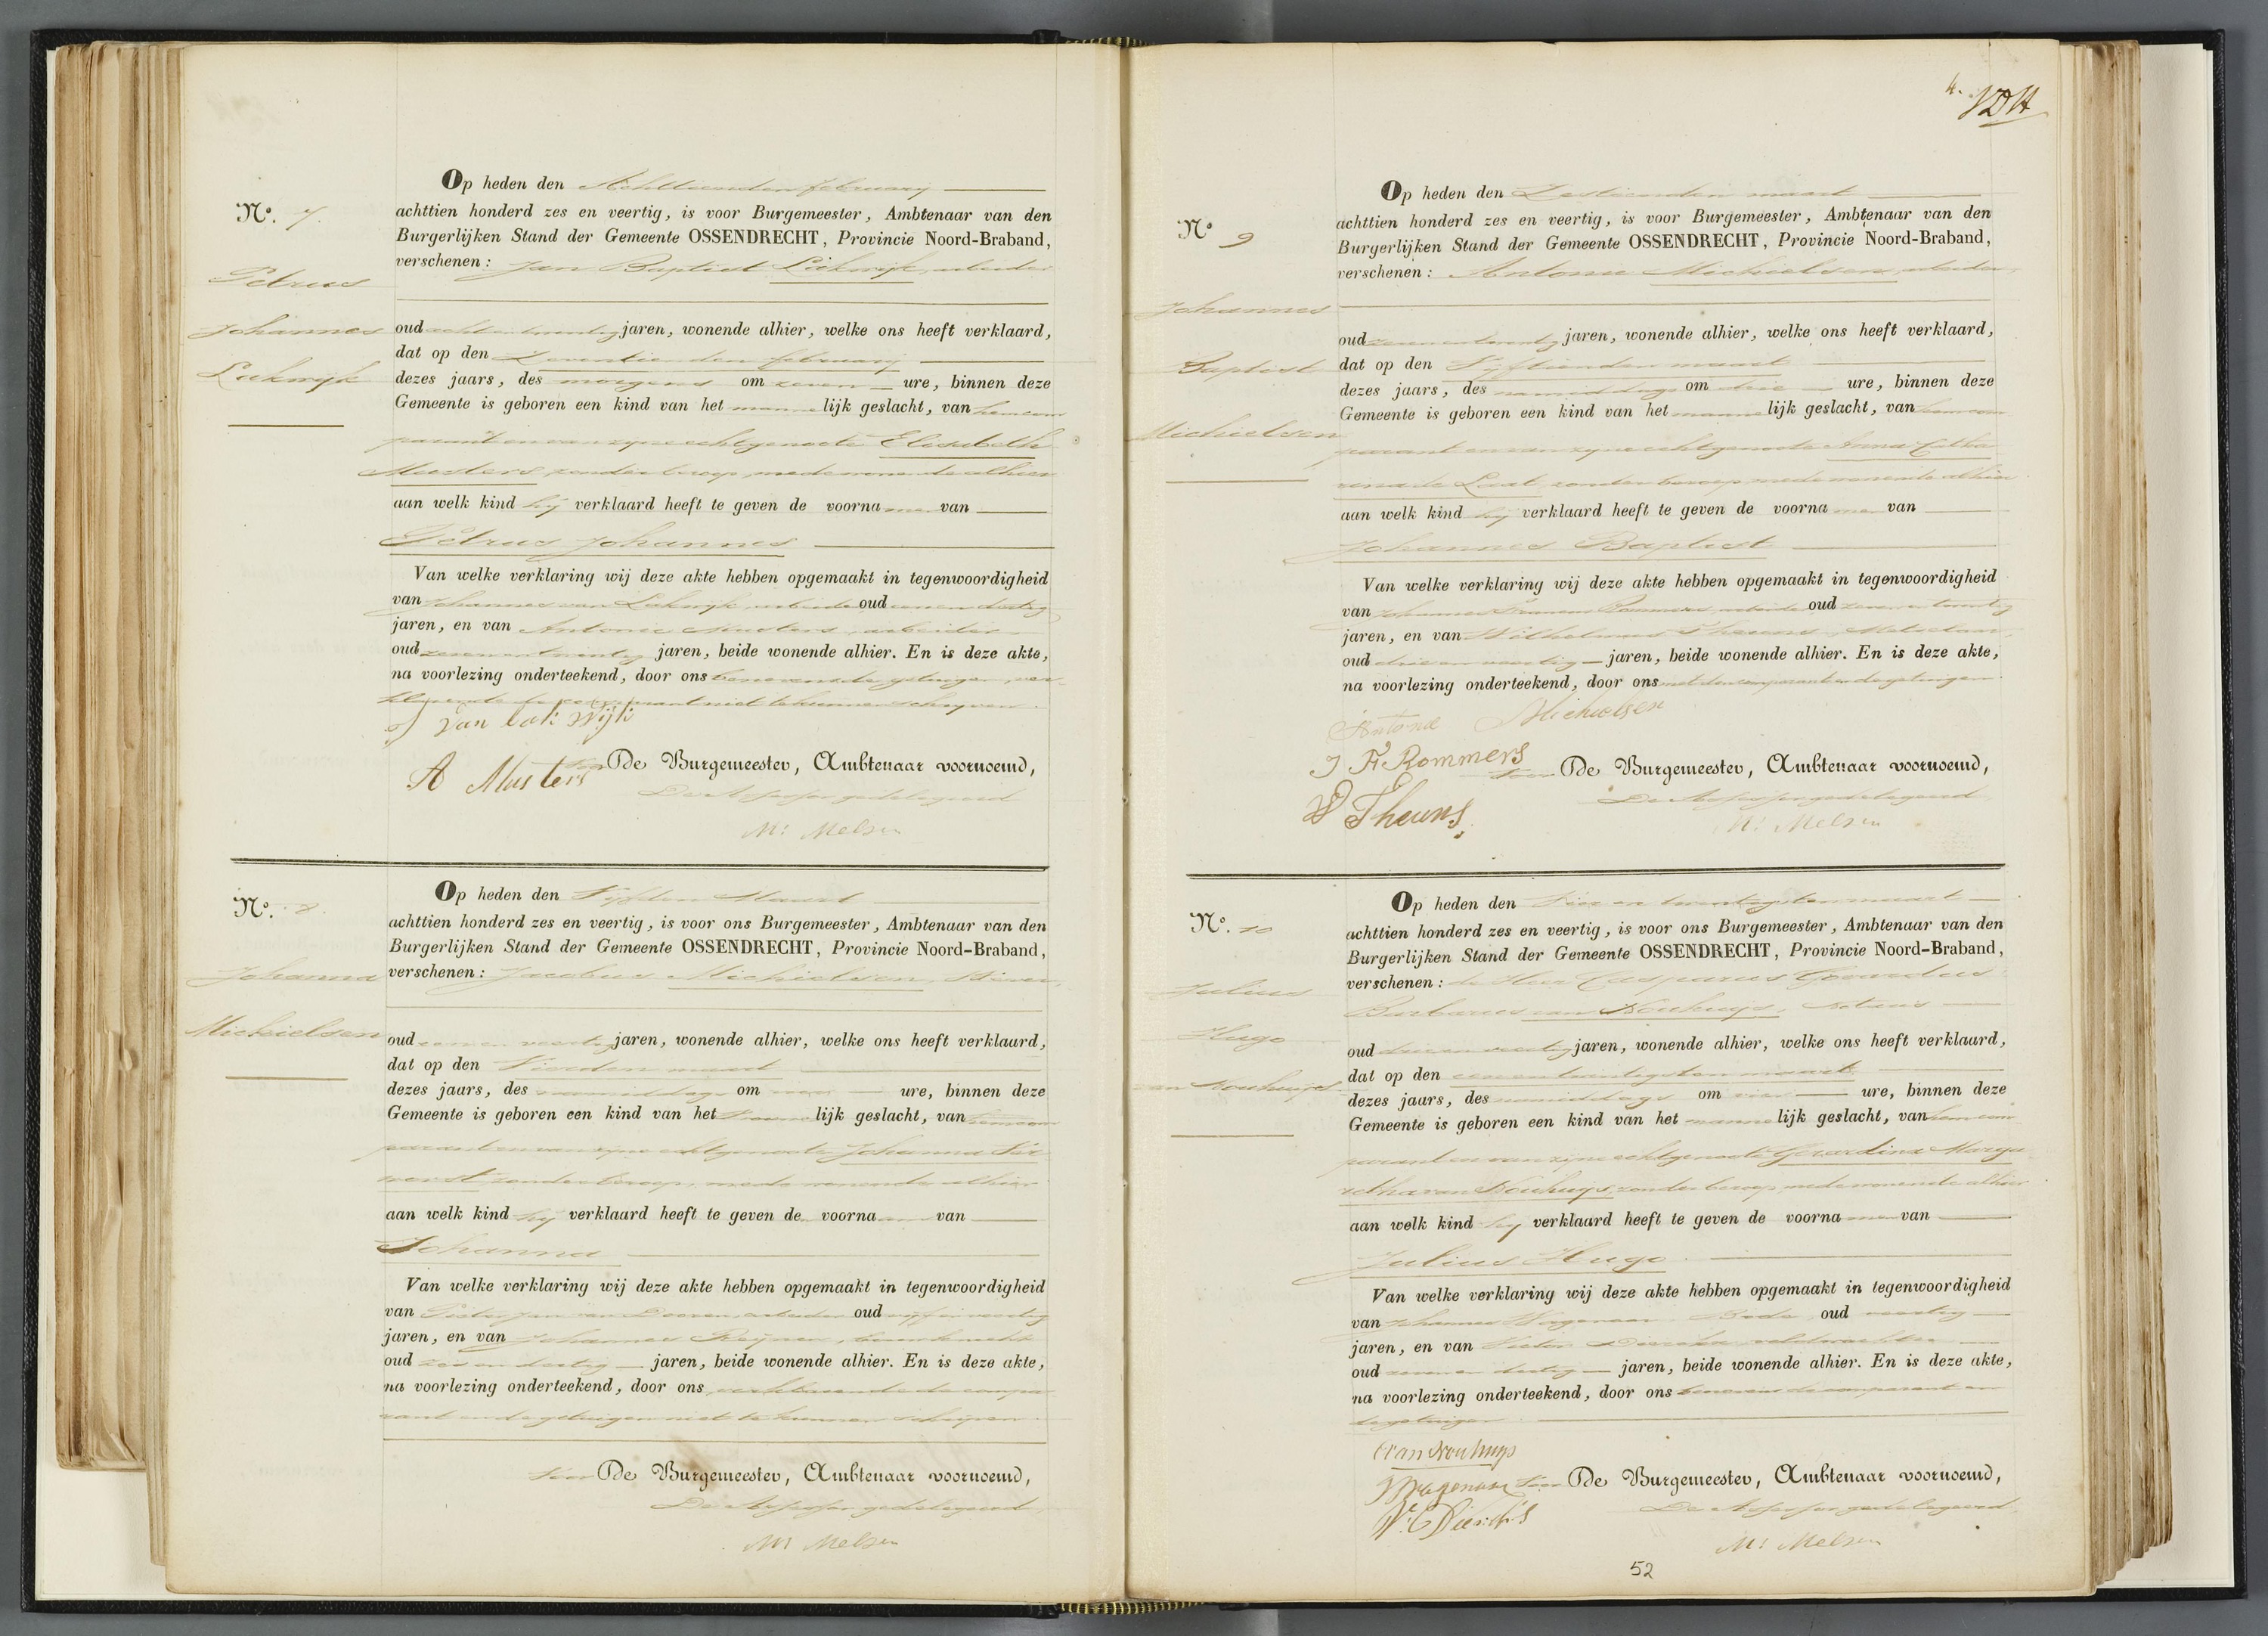 Nº. 7.
Petrus
Johannes
Lukwijk
Op heden den Achttienden february
achttien honderd zes en veertig, is voor Burgemeester, Ambtenaar van den
Burgerlijken Stand der Gemeente OSSENDRECHT, Provincie Noord-Braband,
verschenen: Jan Baptist arbeider
oud acht en twintig jaren, wonende alhier, welke ons heeft verklaard,
dat op den Zeventienden february
dezes jaars, des morgens om zeven ure, binnen deze
Gemeente is geboren een kind van het mannelijk geslacht, van hem com
parant en van zyne echtgenoote Elisabeth
Musters, zonder beroep, mede wonende alhier
aan welk kind hy verklaard heeft te geven de voornamen van
Petrus Johannes
Van welke verklaring wij deze akte hebben opgemaakt in tegenwoordigheid
van Johannes van arbeider oud
jaren, en van Antonie Musters, arbeider
oud zeven en twintig jaren, beide wonende alhier. En is deze akte,
na voorlezing onderteekend, door ons benevens de getuigen, ver
klarende de comparant niet te kunnen schryven.
J van lukwijk
A Musters
De Burgemeester, Ambtenaar voornoemd,
De Assessor gedelegeerd
Ms Melsen
Nº. 8.
Johanna
Michielsen
Op heden den Vyfden Maart
achttien honderd zes en veertig, is voor ons Burgemeester, Ambtenaar van den
Burgerlijken Stand der Gemeente OSSENDRECHT, Provincie Noord-Braband,
verschenen: Jacobus Michielsen,
oud en veertig jaren, wonende alhier, welke ons heeft verklaard,
dat op den Vierden maart
dezes jaars, des namiddags om ure, binnen deze
Gemeente is geboren een kind van het vrouwelijk geslacht, van hem com
parant en van zyne echtgenoote Johanna
zonder beroep, mede wonende alhier
aan welk kind hy verklaard heeft te geven de voornaam van
Johanna
Van welke verklaring wij deze akte hebben opgemaakt in tegenwoordigheid
van Pieter Jan van Dooren, arbeider oud vyf en veertig
jaren, en van Johannes
oud en dertig jaren, beide wonende alhier. En is deze akte,
na voorlezing onderteekend, door ons verklarende de compa
rant en de getuigen niet te kunnen schryven.
Voor De Burgemeester, Ambtenaar voornoemd,
De Assessor gedelegeerd
Ms Melsen
4.
Nº 9
Johannes
Baptist
Michielsen
Op heden den Zestienden maart
achttien honderd zes en veertig, is voor Burgemeester, Ambtenaar van den
Burgerlijken Stand der Gemeente OSSENDRECHT, Provincie Noord-Braband,
verschenen: Antonie Michielsen, arbeider,
oud zeven en twintig jaren, wonende alhier, welke ons heeft verklaard,
dat op den Vyftienden maart
dezes jaars, des namiddags om drie ure, binnen deze
Gemeente is geboren een kind van het mannelijk geslacht, van hem com
parant en van zyne echtgenoote Anna Catha
rina de Laat, zonder beroep mede wonende alhier
aan welk kind hy verklaard heeft te geven de voornamen van
Johannes Baptist
Van welke verklaring wij deze akte hebben opgemaakt in tegenwoordigheid
van Johannes Rommers, arbeider oud zeven en twintig
jaren, en van Wilhelmus Theuns, Metselaar,
oud drie en veertig jaren, beide wonende alhier. En is deze akte,
na voorlezing onderteekend, door ons met den comparant en de getuigen.
Antonie Michielsen
J F Rommers
W Theuns,
Voor De Burgemeester, Ambtenaar voornoemd,
De Assessor gedelegeerd
Ms Melsen
Nº. 10
Julius
Hugo
van Nouhuijs
Op heden den Vier en twintigsten maart
achttien honderd zes en veertig, is voor ons Burgemeester, Ambtenaar van den
Burgerlijken Stand der Gemeente OSSENDRECHT, Provincie Noord-Braband,
verschenen: de Heer Casparus Gerardus
Barbarus van Nouhuijs, Notaris
oud en veertig jaren, wonende alhier, welke ons heeft verklaard,
dat op den een en twintigsten maart
dezes jaars, des namiddags om vier ure, binnen deze
Gemeente is geboren een kind van het mannelijk geslacht, van hem com
parant en van zyne echtgenoote Gerardina Marga
retha van Nouhuijs, zonder beroep, mede wonende alhier
aan welk kind hy verklaard heeft te geven de voornamen van
Julius Hugo
Van welke verklaring wij deze akte hebben opgemaakt in tegenwoordigheid
van Johannes Wagenaar, Bode oud veertig
jaren, en van Dierckx, veldwachter
oud zeven en dertig jaren, beide wonende alhier. En is deze akte,
na voorlezing onderteekend, door ons benevens de comparant en
de getuigen.
van Nouhuys
J Wagenaar
Voor De Burgemeester, Ambtenaar voornoemd,
De Assessor gedelegeerd
Ms Melsen
52